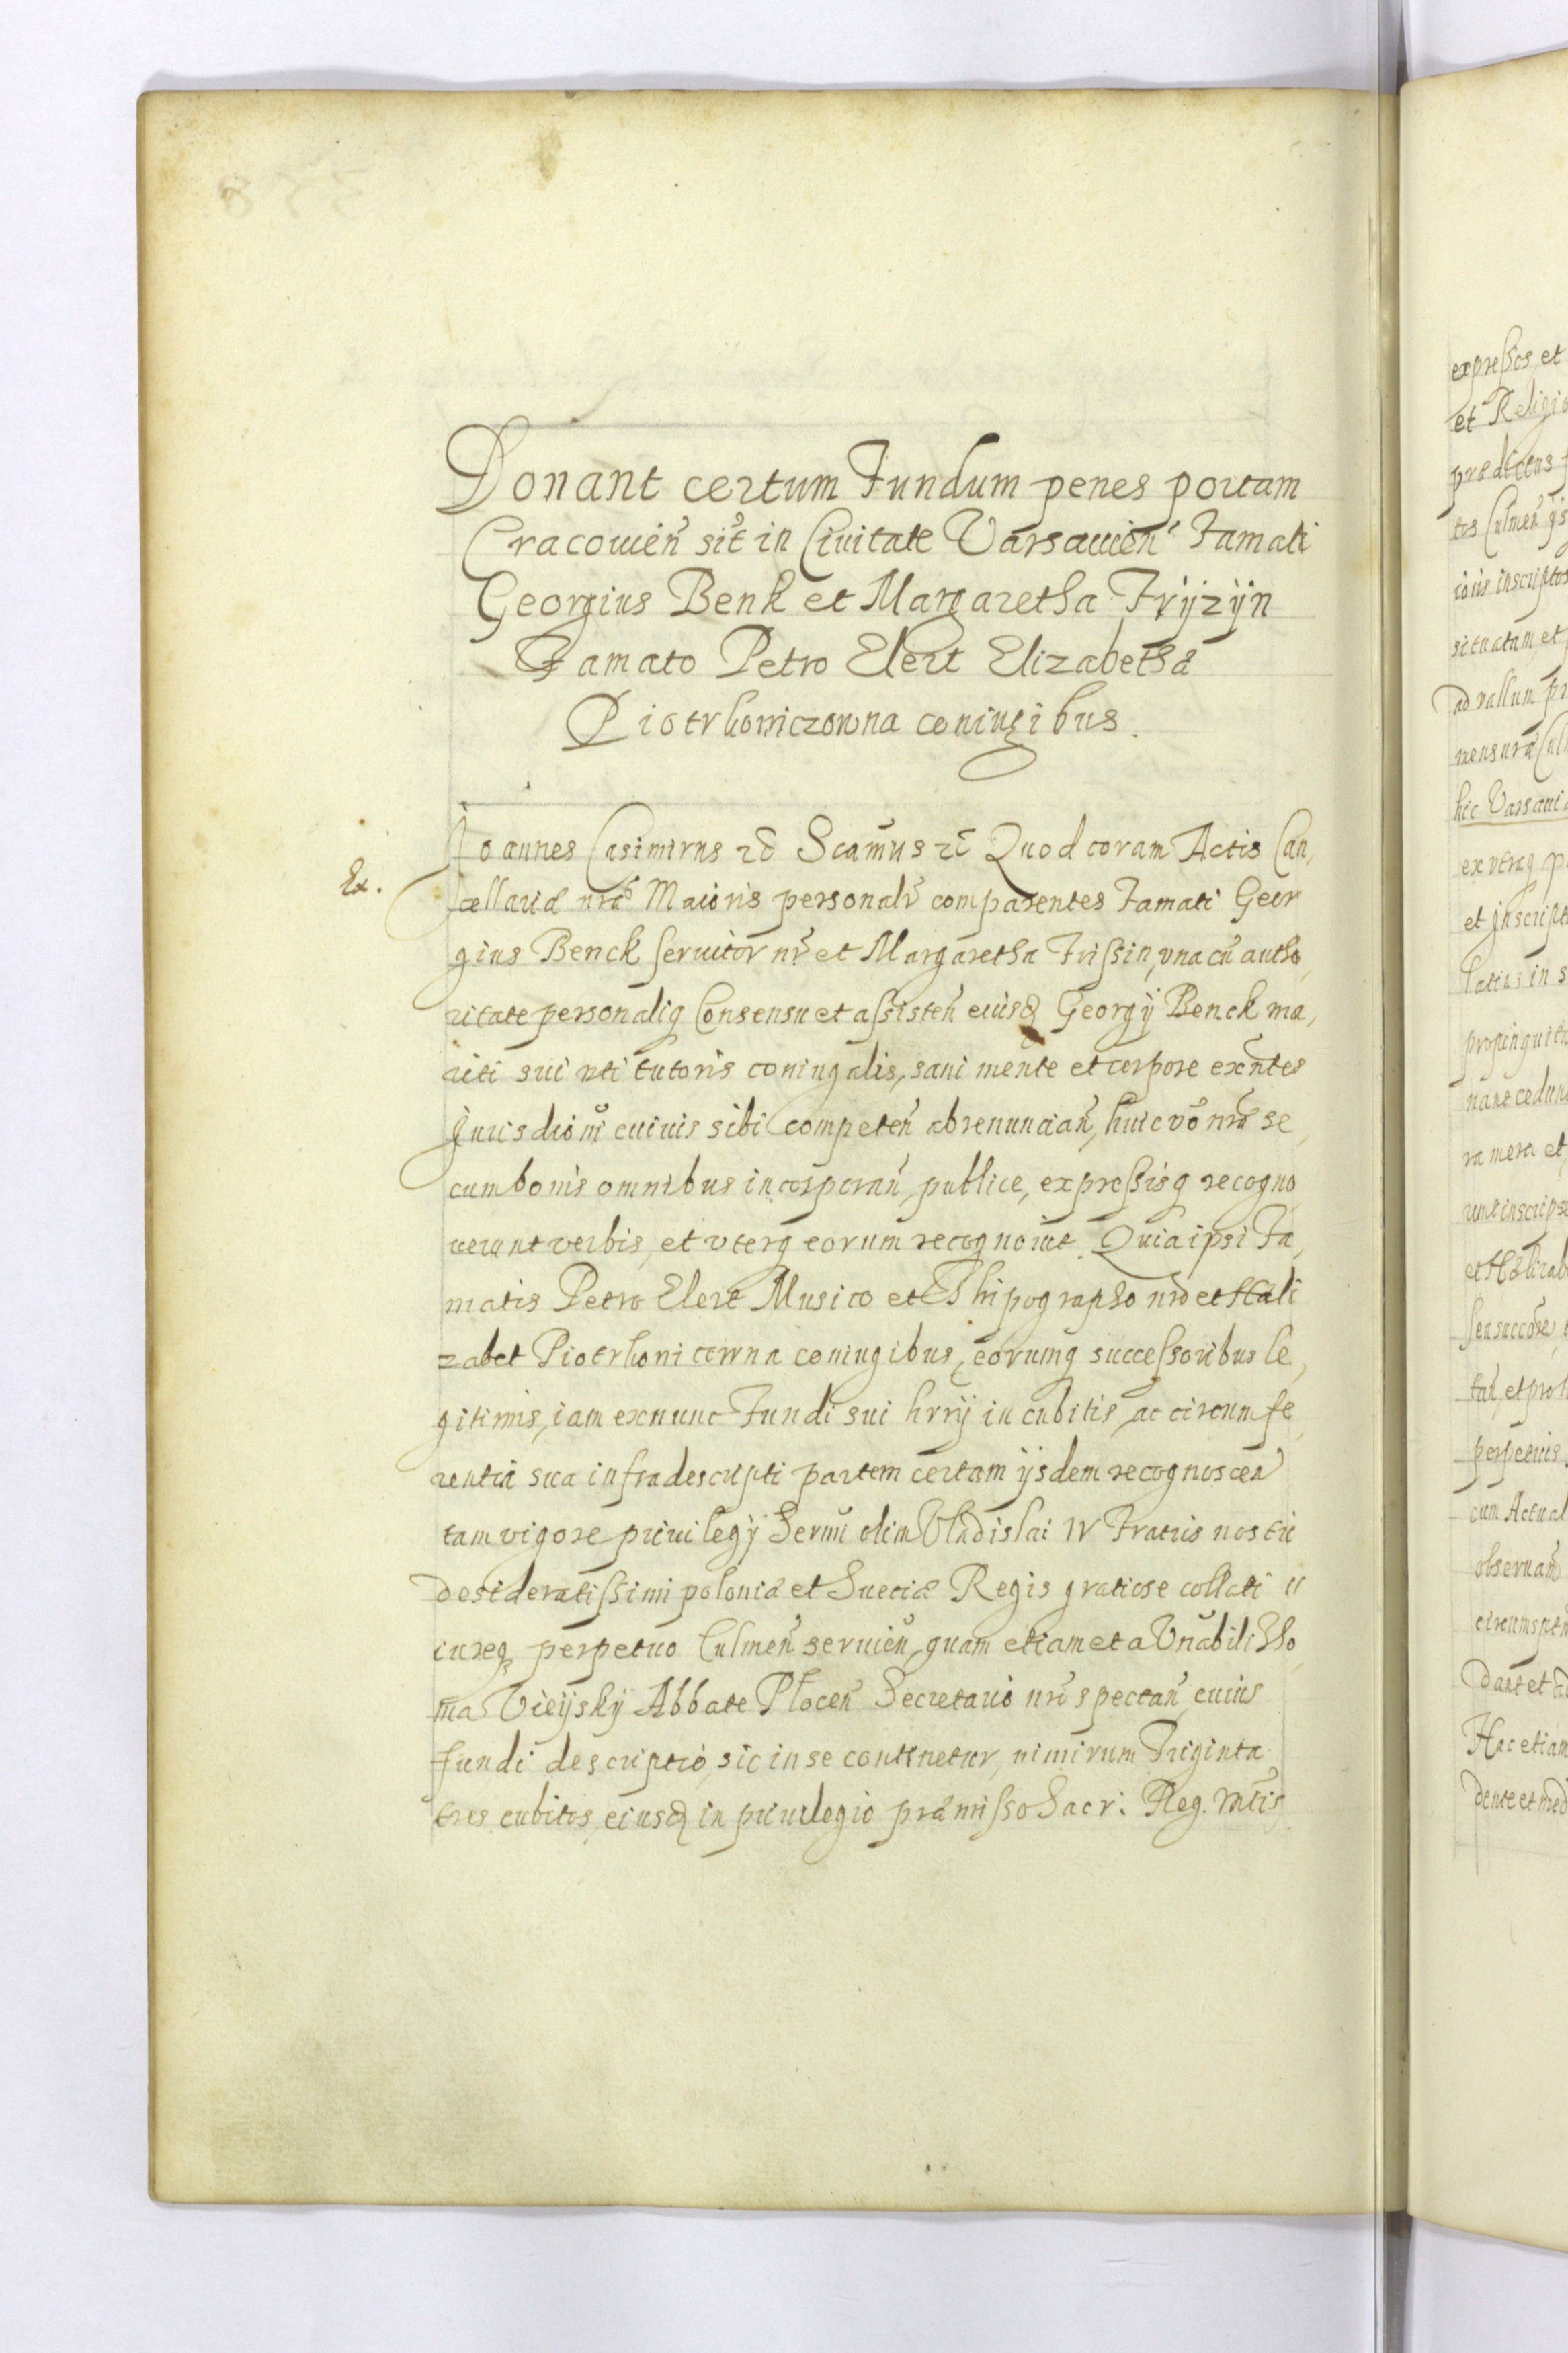 Donant certum Fundum penes portam
Cracouień sit̄ in Ciuitate Varsauień Famati
Georgius Benk et Margaretha Frÿzÿn
Famato Petro Elert Elizabetha
Piotrkowiczowna coniugibus.
Ex.
Joannes Casimirus zc̄ Scamūs zc̄ Quod coram Actis Can,
cellariæ nrãe Maioris personalr̄ comparentes Famati Geor
gius Benck seruitor nr̄ et Margaretha Frißin, vna cū autho,
ritate personaliq Consensu et aßisteń eiusd Georgÿ Benck ma,
riti sui uti tutoris coniugalis, sani mente et corpore exn̄tes
Jurisdiōni cuiuis sibi competeń abrenunciań, huic vō nrāe se,
cum bonis omnibus incorporań, publice, expreßisq recogno
uerunt verbis, et vterq eorum recognouit. Quia ipsi Fa,
matis Petro Elert Musico et Thipographo nrō et Hæli
zabet Piotrkonicewna coniugibus, eorumq succeßoribus le,
gitimis, iam exnunc Fundi sui hrrÿ in cubitis, ac circumfe,
rentia sua infradescripti partem certam ÿsdem recognoscen
tam vigore priuilegÿ Sermi olim Vladislai IV Fratris nostri
desideratißimi poloniæ et Sueciæ Regis gratiose collati
iureq perpetuo Culmeń seruień, quam etiam et a Vn̄abili Tho,
ma Vieÿskÿ Abbate Płoceń Secretario nrō spectań, cuius
fundi descriptio, sic in se continetur, nimirum Triginta
tres cubitos, eiusd in priuilegio præmißo Sacr: Reg. Mt̄is
expreßos, et
et Religio
prædictus
tes Culmeń
inscriptos
situatam, et
ad vallum pr
mensura Cul
hic Varsaui
ex vtraq p
et inscript
latius in s
propinquit
nant cedun
ra mera et
runt inscrips
et Hælizab
seu succōre
tuń, et pro
perpetuis
cum Actual
obseruań
circumspen
Dant et a
Hac etiam
dente et med